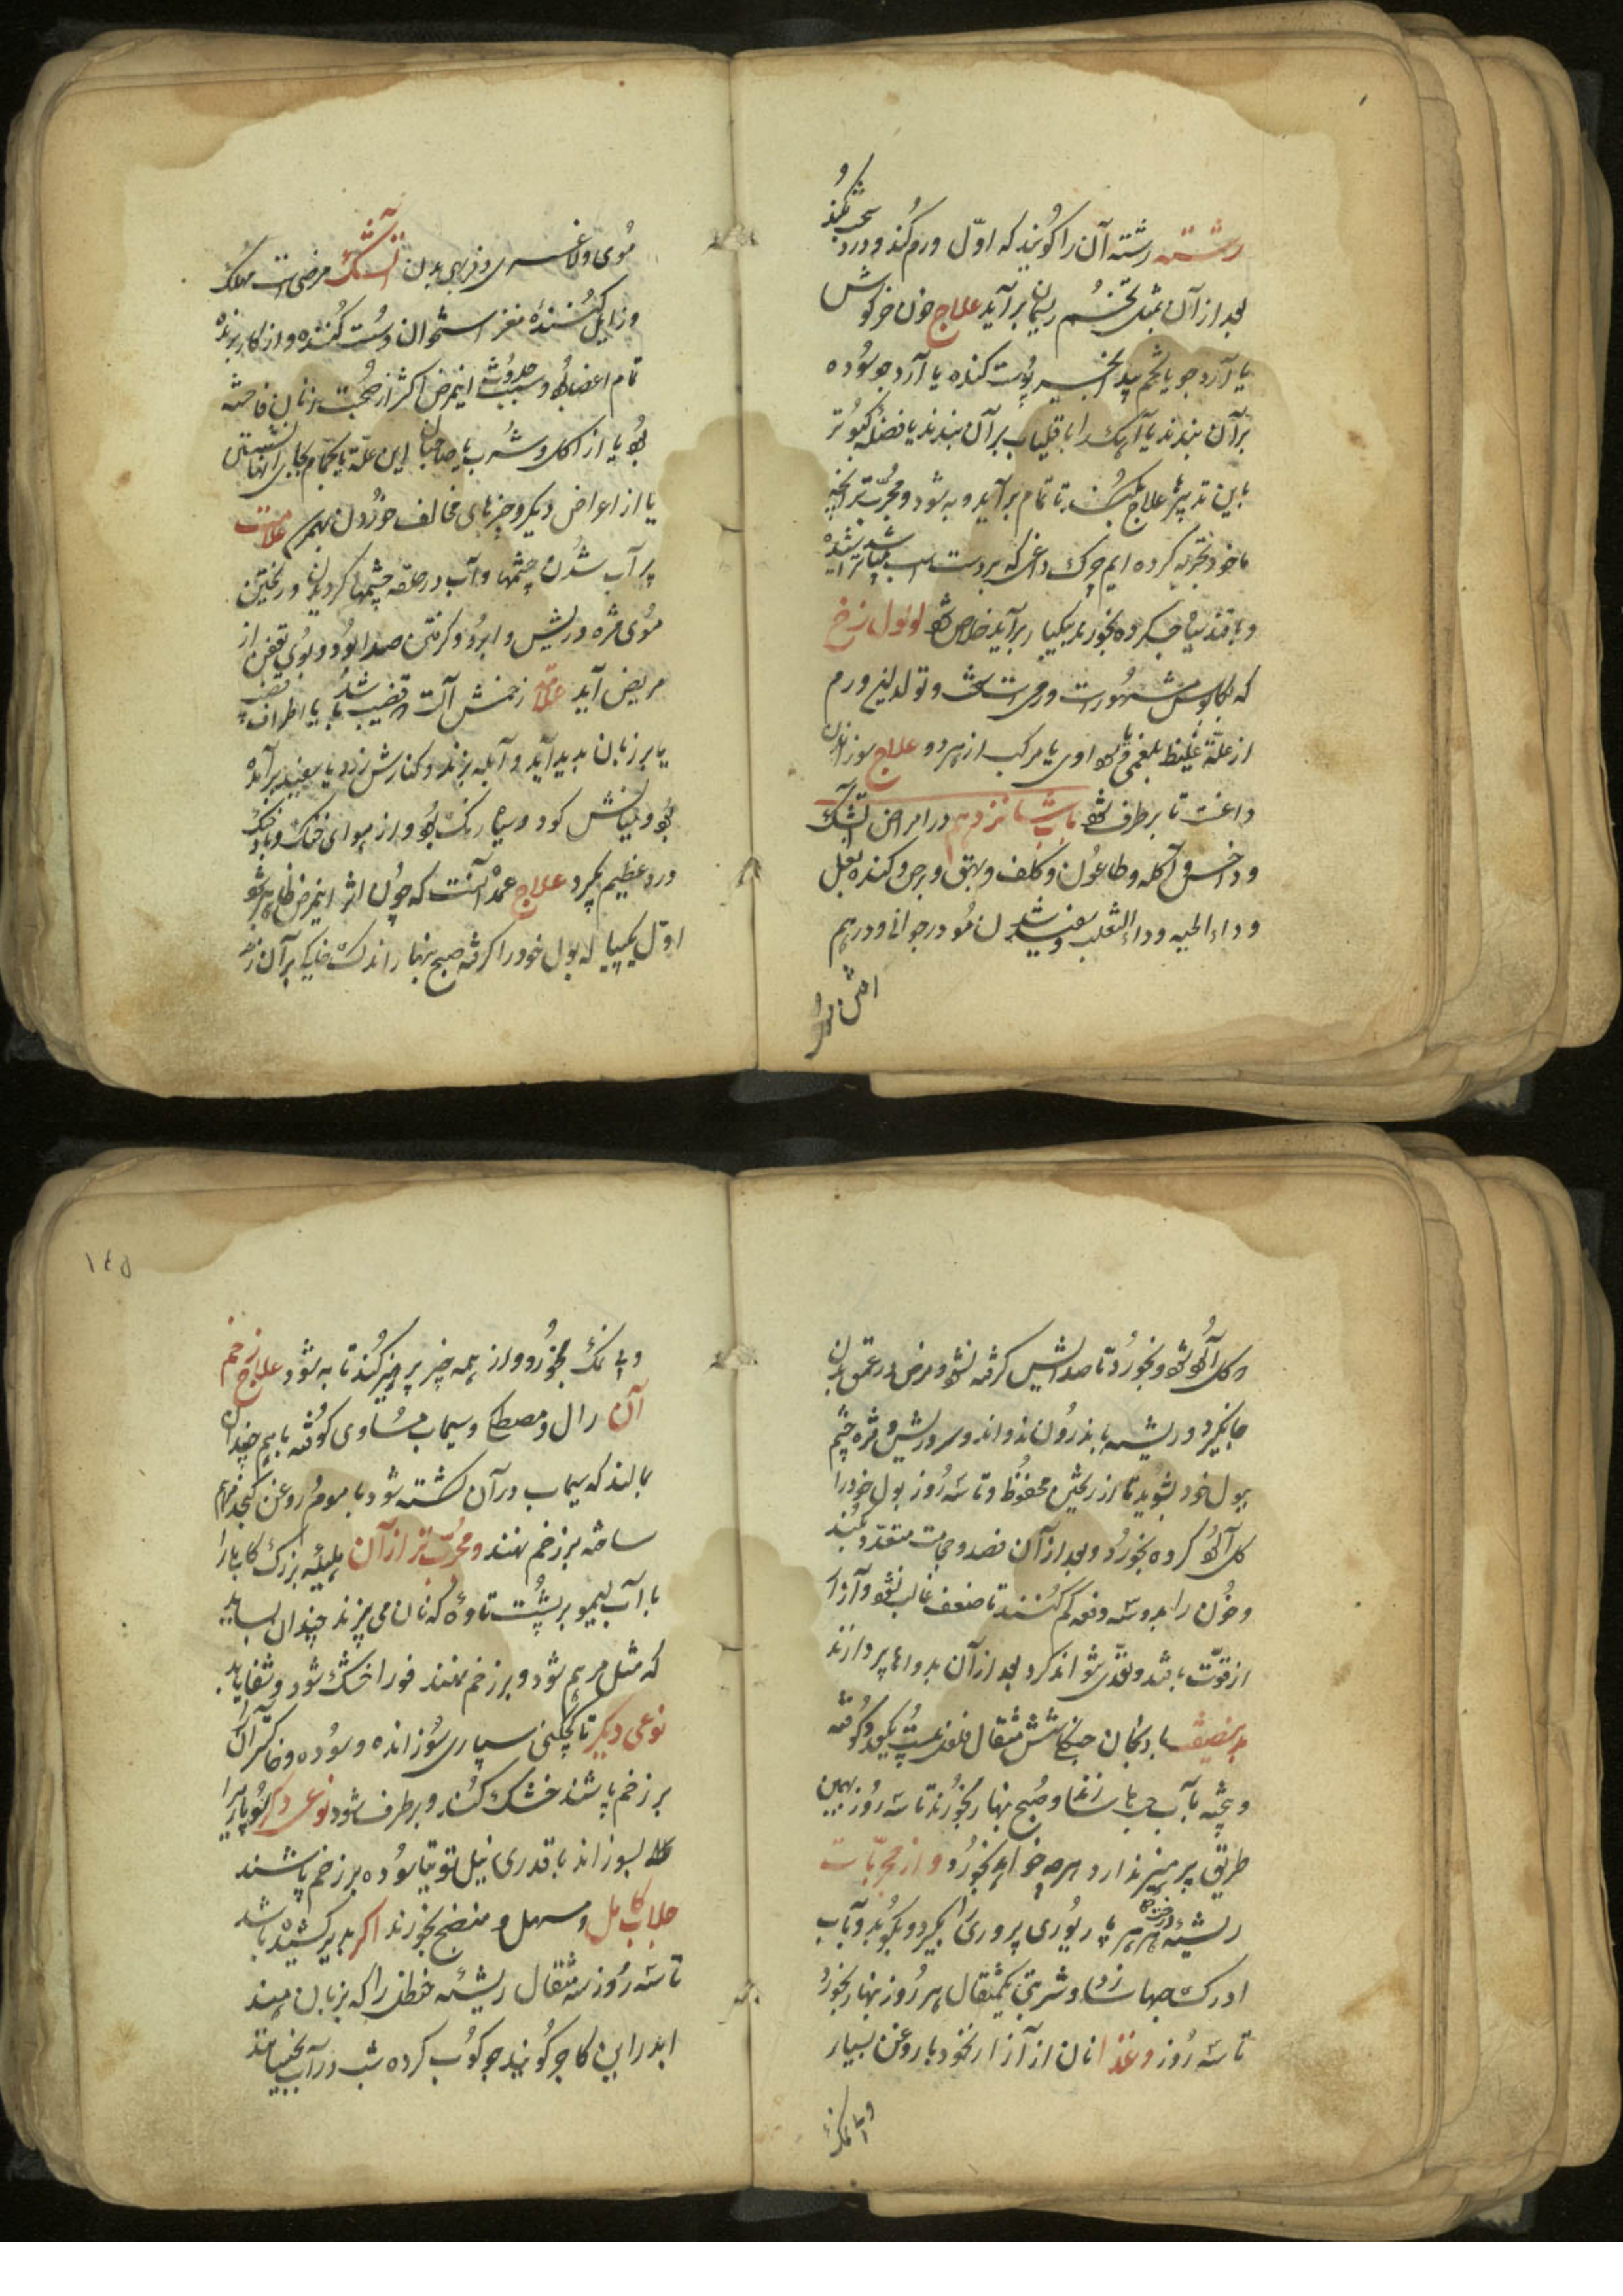 رشته رشته آن را گویند که اوّل ورم کند و درد سخت کند و
بعد از آن بمثل تخم ریسمان برآید علاج خون خرگوش
یا آرد جو یا تخم بید انجیر پوست کنده یا آرد جو سوده
برآن بندند یا آهک را با قلیاب برآن بندند یا فضله کبوتر
باین تدبیرها علاج بکنند تا تمام برآید و به شود و مجرّب تر آنچه
ما خود تجربه کرده ایم چرک داغی که بر دست اسب
و با قند سیاه کرده بخورند یکبار برآید خلاص شود لولول نرخ
که بکاوس مشهورست ورمی است سخت و تولد این ورم
از علّة غلیظ بلغمی یا سوداوی یا مرکب از هر دو علاج سوزاندن
داغست تا برطرف شود باب شانزدهم در امراض آتشک
و داخس و آکله و طاعون و کلف و بهق و برص و کنده بغل
و داء الحیه و داء الثعلب و سفید شدن مو در جوانی و درهم
موی و لاغری و فربهی بدن آتشک مرضی است مهلک
و زایل کنندهٔ مغز استخوان و سست کننده و از کار برنده
تمام اعضا بود و سبب حدوث اینمرض اکثر از صحبت زنان فاحشه
بود یا از اکل و شرب با صاحبان این علّة یا بحمام بجای آنها نشستن
یا از اعراض دیگر و چیزهای مخالف خوردن بهم رسد علامت
پر آب شدن چشمها و آب در حلقه چشمها گردیدن و ریختن
موی مژه و ریش و ابرو و گرفتن صدا بود و بوی تعفن از
مریض آید علامة زخمش آلت قضیب باشد یا اطراف قضیب
یا بر زبان پدید آید و آبله بزند و کنارش زرد یا سفید برآمده
بود و میانش کود و سیاه رنگ بود و از هوای خنک و باد خنک
درد عظیم گیرد علاج عمده آنست که چون اثر اینمرض ظاهر شود
اوّل یک پیاله بول خود را گرفته صبح نهار اندک خاکی برآن زند
و گل آلود شود و بخورد تا صدایش گرفته نشود و مرض در عمق بدن
جا نگیرد و ریشه به اندرون ندواند و سر و ریش و مژه چشم
ببول خود بشوید تا از ریختن محفوظ و تا سه روز بول خود را
گل آلود کرده بخورد و بعد از آن فصد و حجامت متعدّد بکنند
و خون را بدو سه دفعه کم کنند تا ضعف غالب نشود و آزار
از قوّت بافتد و تعدّی نتواند کرد بعد از آن بدواها پردازند
بادنجان جنگلی شش مثقال فلفل بیست یکعدد کوفته
و پخته بآب حب ها سازند و صبح نهار بخورند تا سه روز بهمین
طریق پرهیز ندارد هرچه خواهد بخورد و از مجرّبات
ریشهٔ درخت هرهر پاریوری پروری را بگیرد و بکوبد و بآب
ادرک حبها سازد و شربتی یکمثقال هر روز نهار بخورد
تا سه روز و غذا نان از آرد نخود با روغن بسیار
و بی نمک
۱۴۵
و بی نمک بخورد و از همه چیز پرهیز کند تا به شود علاج زخم
آن رال و مصطکی و سیماب مساوی کوفته باهم چندان
بمالند که سیماب در آن کشته شود با موم و روغن کنجد مرهم
ساخته بر زخم نهند و مجرّب تر از آن هلیلهٔ بزرگ کابلی را
با آب لیمو بر پشت تاوهٔ که نان می پزند چندان بساید
که مثل مرهم شود و بر زخم نهند فورا خشک شود و شفا یابد
نوعی دیگر تا چکنی سپاری سوزانده و سوده و خاکستر آن را
بر زخم پاشند خشک کند و برطرف شود نوعی دیگر
بسوزاند با قدری نیل توتیا سوده بر زخم پاشند
جلاب کابل و مسهل و منضج بخورند اگر بدیر کشیده باشد
تا سه روز سه مثقال ریشهٔ حنظل را که بزبان هند
ابدراین کا جر گویند جو کوب کرده شب در آب بخیسانند